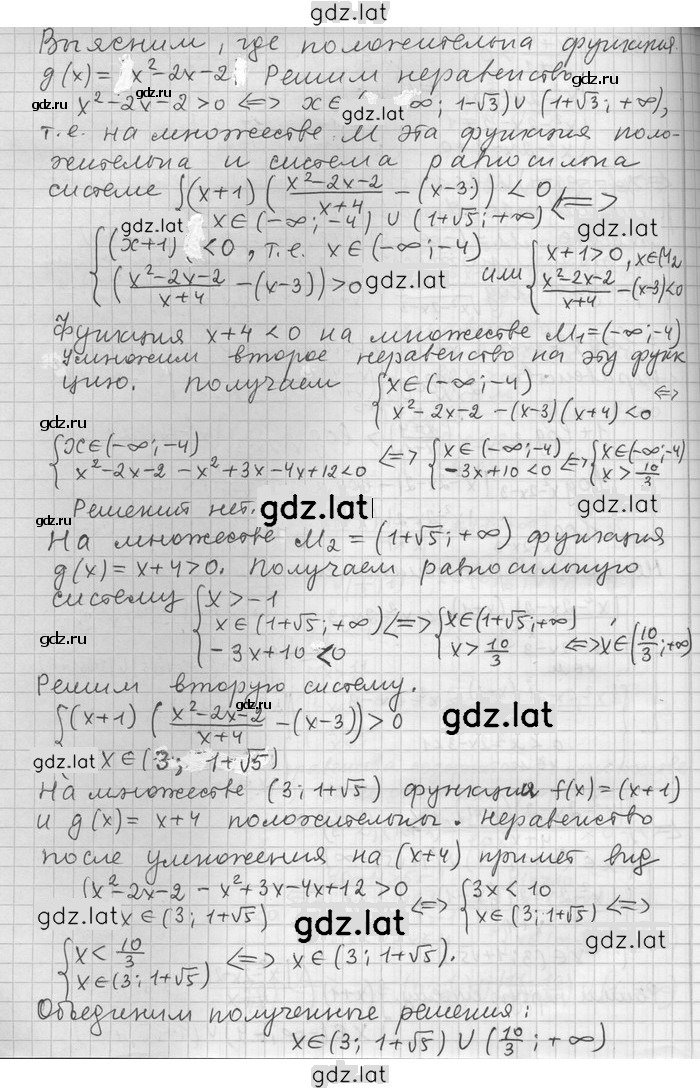 gdz.lat
Выясним, где положительна функция
g(x) = x²-2x-2. Решим неравенство
gdz.ru x²-2x-2>0 <=> x∈ ∞; 1-√3)∪(1+√3; +∞), gdz.ru
gdz.lat
т.е. на множестве M эта функция поло-
жительна и система равносильна
системе {(x+1)((x²-2x-2)/(x+4) - (x-3)) < 0 <=>
gdz.lat x∈(-∞; -4) ∪ (1+√5; +∞) gdz.lat
{(x+1) <0, т.е. x∈(-∞; -4) или {x+1>0, x∈M₂
((x²-2x-2)/(x+4) -(x-3))>0 gdz.lat (x²-2x-2)/(x+4) -(x-3)<0
Функция x+4<0 на множестве M₁=(-∞; -4)
Умножим второе неравенство на эту функ
цию. Получаем {x∈(-∞; -4)
x²-2x-2-(x-3)(x+4)<0 <=>
gdz.ru gdz.ru
{x∈(-∞; -4) <=> {x∈(-∞; -4) <=> {x∈(-∞; -4)
x²-2x-2-x²+3x-4x+12<0 -3x+10<0 x>10/3
Решений нет. gdz.lat gdz.lat
На множестве M₂=(1+√5; +∞) функция
g(x)=x+4>0. Получаем равносильную
систему {x>-1
gdz.ru x∈(1+√5; +∞) <=> {x∈(1+√5; +∞)
-3x+10<0 x>10/3 <=> x∈(10/3; +∞) gdz.ru
Решим вторую систему.
{(x+1)((x²-2x-2)/(x+4) -(x-3))>0 gdz.lat
gdz.lat x∈(3; 1+√5)
На множестве (3; 1+√5) функция f(x)=(x+1)
и g(x)=x+4 положительны. Неравенство
после умножения на (x+4) примет вид
(x²-2x-2-x²+3x-4x+12>0 <=> {3x<10 <=>
gdz.lat x∈(3; 1+√5) gdz.lat x∈(3; 1+√5) gdz.lat
{x<10/3 <=> x∈(3; 1+√5).
x∈(3; 1+√5)
Объединим полученные решения:
x∈(3; 1+√5)∪(10/3; +∞)
gdz.lat